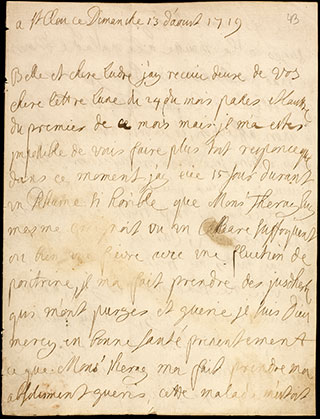 a St Clou ce Dimanche 13 d'aoust 1719
43
Belle et chere Ludre jay receu deux de vos
chere lettre lune du 29 du mois passes et lautre
du premier de ce mois mais il ma estes
impossible de vous faire plus tot reponce que
dans ce moment jay eüe 15 jour durant
un Rhume si horible que Mons Theray luy
mesme craignoit ou un Catare suffoquant
ou bien une fievre avec une fluction de
poitrine, il ma fait prendre des
qui mont purges et guerie je suis Dieu
mercy en bonne santé presentement
ce que Mons Theray ma fait prendre ma
absolument gueris, cette maladie